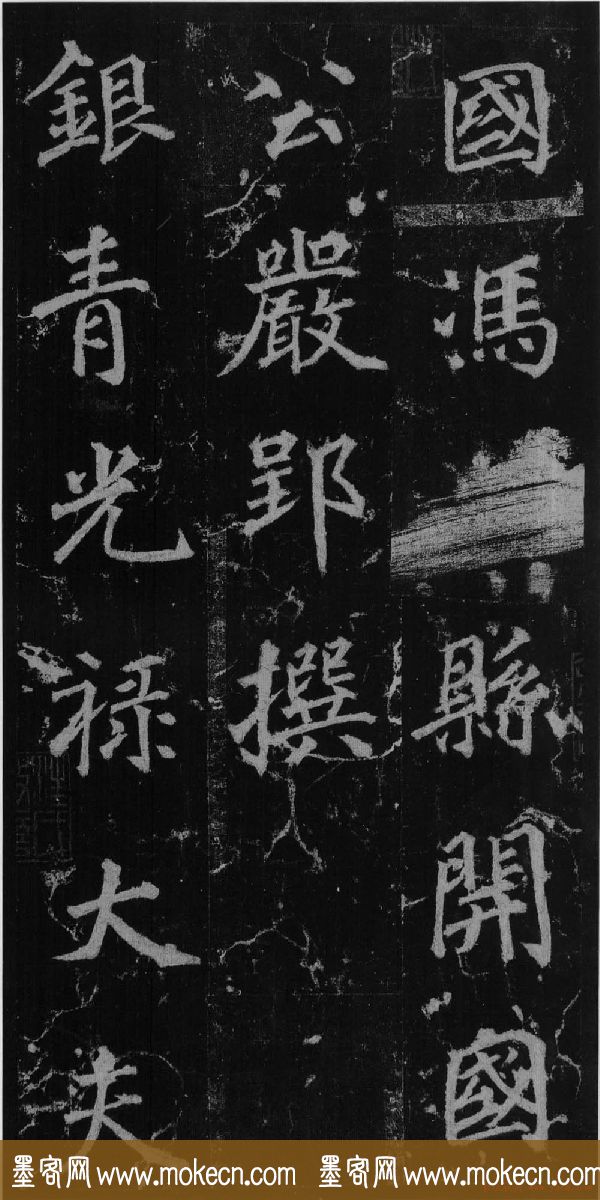 國馮縣開國
公嚴郢撰
銀青光禄大夫
墨客网 www.mokecn.com 墨客网 www.mokecn.com